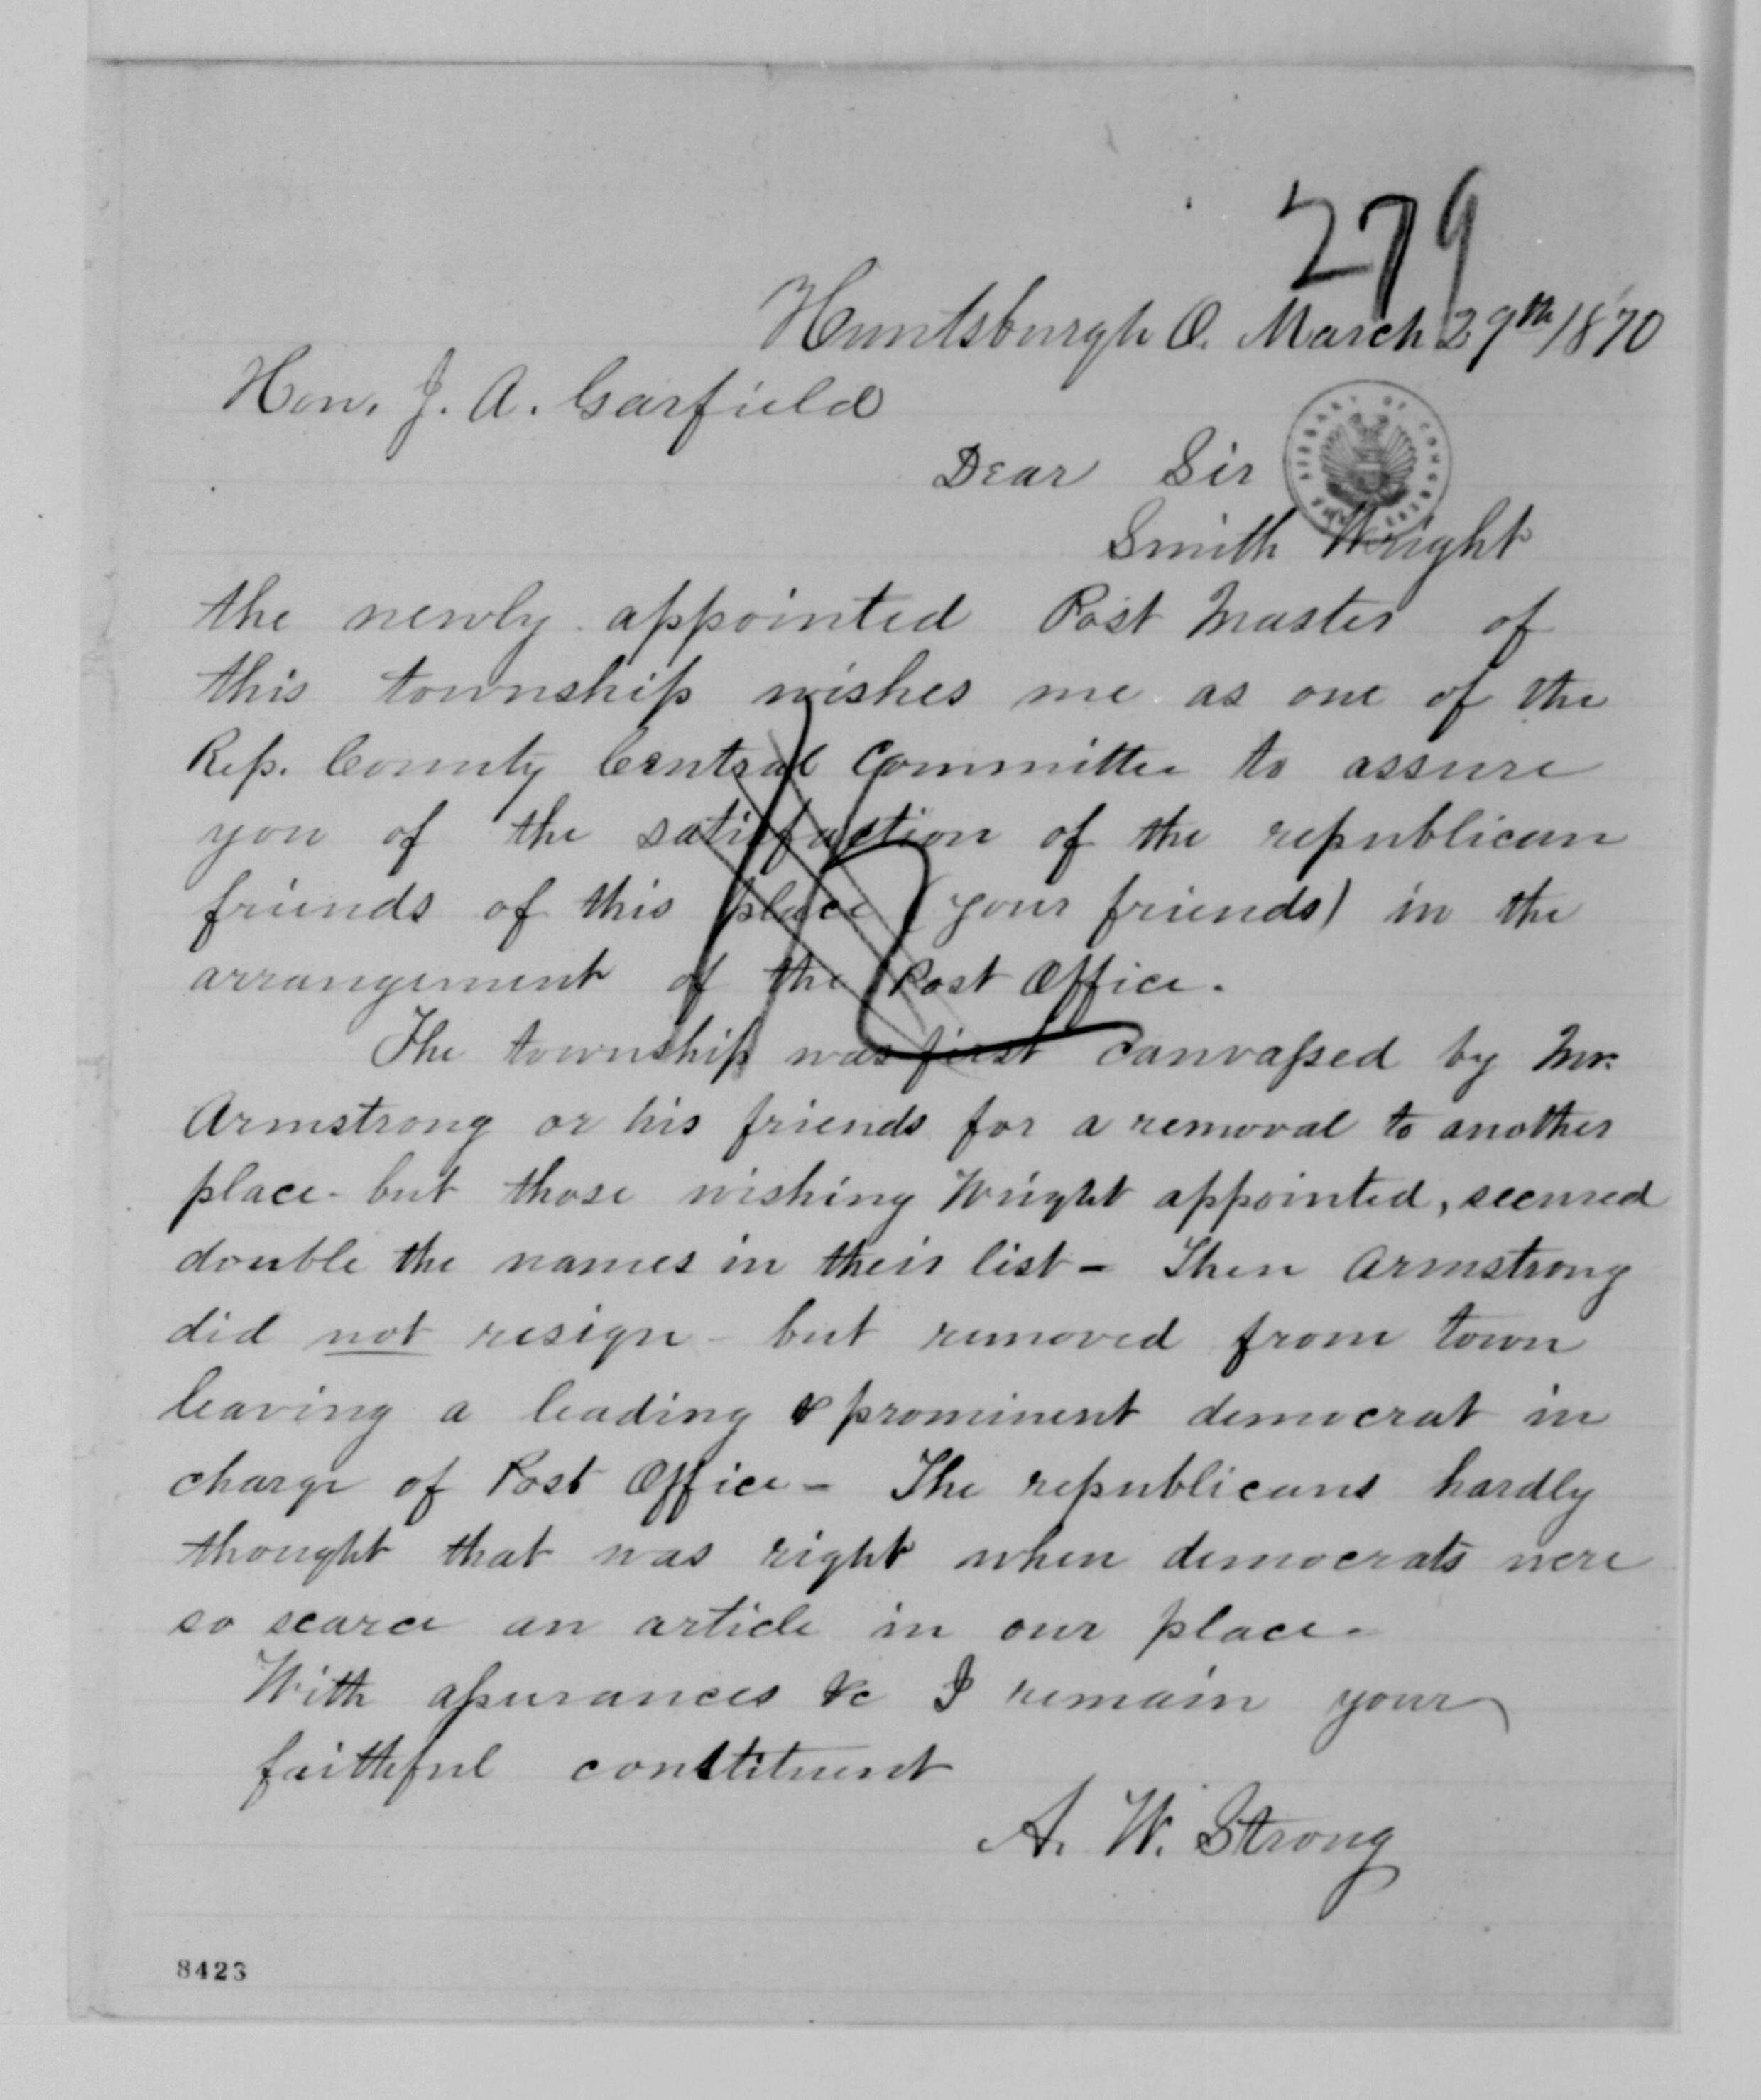 279
Huntsburgh O. March 29th/1870
Hon. J. A. Garfield
Dear Sir
LIBRARY OF CONGRESS
Smith Wright
the newly appointed Post Master of
this township wishes me as one of the
Rep. County Central Committee to assure
you of the satisfaction of the republican
friends of this place (your friends) in the
arrangement of the Post Office.
The township was first canvassed by Mr.
Armstrong or his friends for a removal to another
place - but those wishing Wright appointed, secured
double the names in their list - Then Armstrong
did not resign - but removed from town
leaving a leading & prominent democrat in
charge of Post Office - The republicans hardly
thought that was right when democrats were
so scarce an article in our place -
With assurances &c I remain your
faithful constituent
A. W. Strong
8423